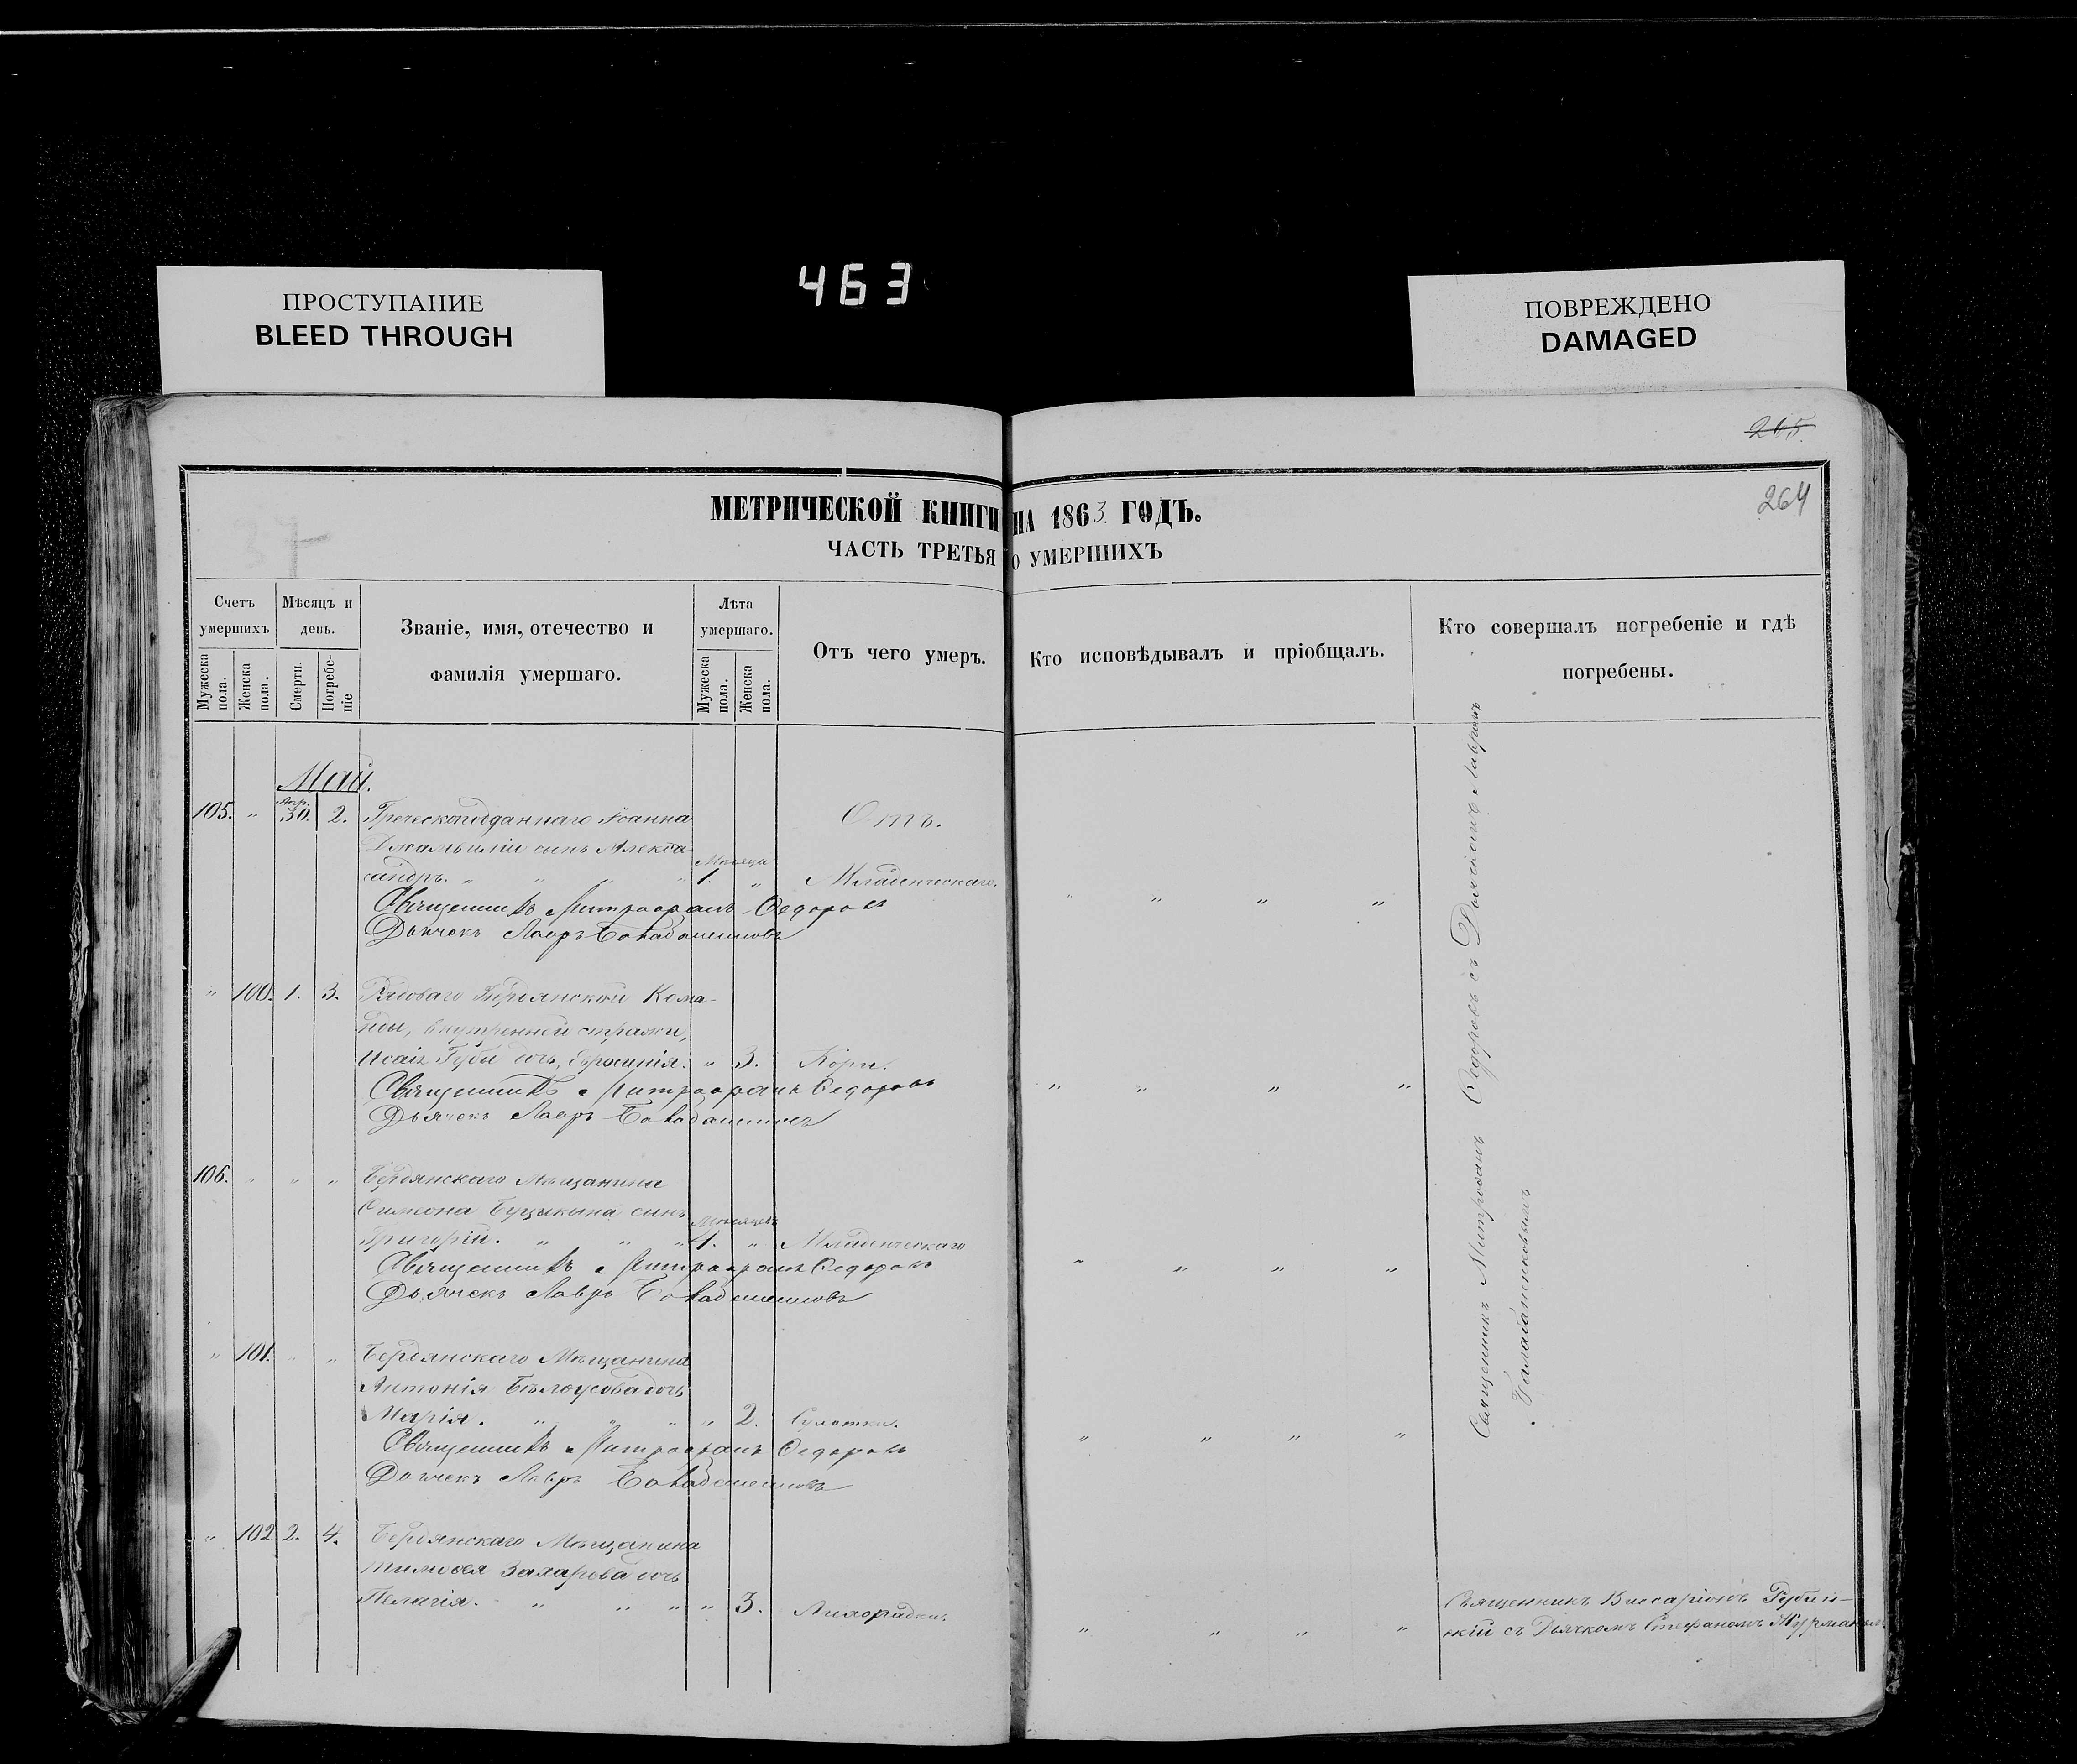 463
ПРОСТУПАНИЕ
BLEED THROUGH
ПОВРЕЖДЕНО
DAMAGED
265.
264
МЕТРИЧЕСКОЙ КНИГИ НА 1863 ГОДЪ.
ЧАСТЬ ТРЕТЬЯ О УМЕРШИХЪ
Счетъ умершихъ
Мужеска пола.
Женска пола.
Мѣсяцъ и день.
Смерти.
Погребе-ніе
Званіе, имя, отечество и
фамилія умершаго.
Лѣта умершаго.
Мужеска пола.
Женска пола.
Отъ чего умеръ.
Кто исповѣдывалъ и пріобщалъ.
Кто совершалъ погребеніе и гдѣ
погребены.
Май.
105. " Апр. 30. 2. Греческоподданнаго Іоанна Отъ.
сынъ Алекса
сандръ. " " " " Мѣсяца 1. " Младенческаго. " " " "
Священникъ Митрофанъ Федоровъ
Дьячекъ Лавръ
" 100. 1. 3. Рядоваго Бердянской Кома-
нды, внутренней стражи,
Исаіи Губи дочь, Ефросинія. " 3. Кори.
Священникъ Митрофанъ Федоровъ " " " "
Дьячекъ Лавръ
106. " " " Бердянскаго Мѣщанина
Симеона сынъ
Григорій. " " " Мѣсяцевъ 4. " Младенческаго
Священникъ Митрофанъ Федоровъ " " " "
Дьячекъ Лавръ
" 101. " " Бердянскаго Мѣщанина
Антонія Бѣлоусова дочь
Марія. " " " " 2. Сухотки.
Священникъ Митрофанъ Федоровъ " " " "
Дьячекъ Лавръ
" 102. 2. 4. Бердянскаго Мѣщанина
Тимофея Захарова дочь
Пелагія. " " " " 3. Лихорадки. " " " "
Священникъ Митрофанъ Федоровъ съ Лавромъ
Священникъ Виссаріонъ
скій съ Дьячкомъ Стефаномъ